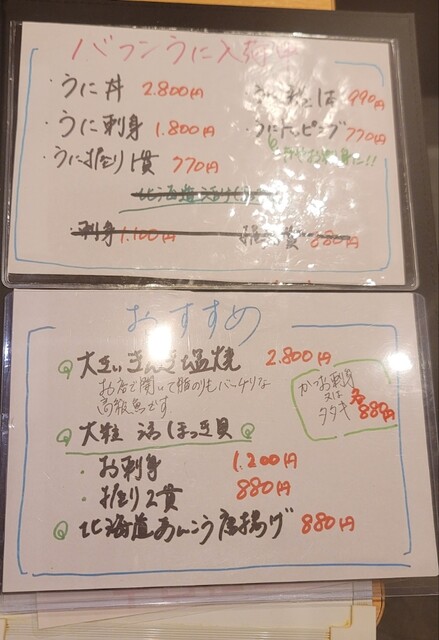 バフンうに入荷中
・うに丼 2.800円
990円
・うに刺身 1.800円
・うにトッピング 770円
・うに握り1貫 770円
北海道活
・刺身 1.100円
貫 880円
おすすめ
大きいきんき塩焼 2.800円
お店で開いて脂のりもバッチリな
高級魚です
かつお刺身
又は
タタキ
各880円
大粒 活ほっき貝
・お刺身 1.200円
・握り2貫 880円
北海道あんこう唐揚げ 880円